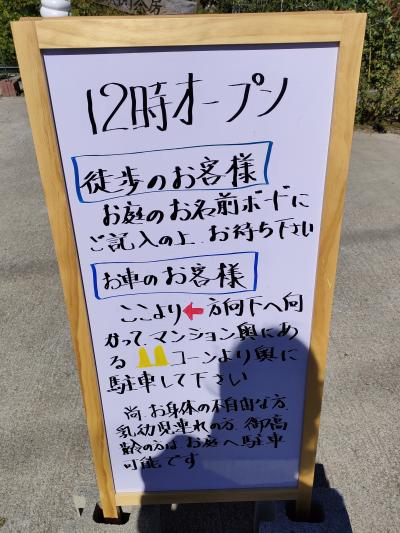 12時オープン
徒歩のお客様
お庭のお名前ボードに
ご記入の上、お待ち下さい
お車のお客様
ここより←方向下へ向
かって、マンション奥にあ
る コーンより奥に
駐車して下さい
尚、お身体の不自由な方、
乳幼児連れの方、御高
齢の方は、お庭へ駐車
可能です